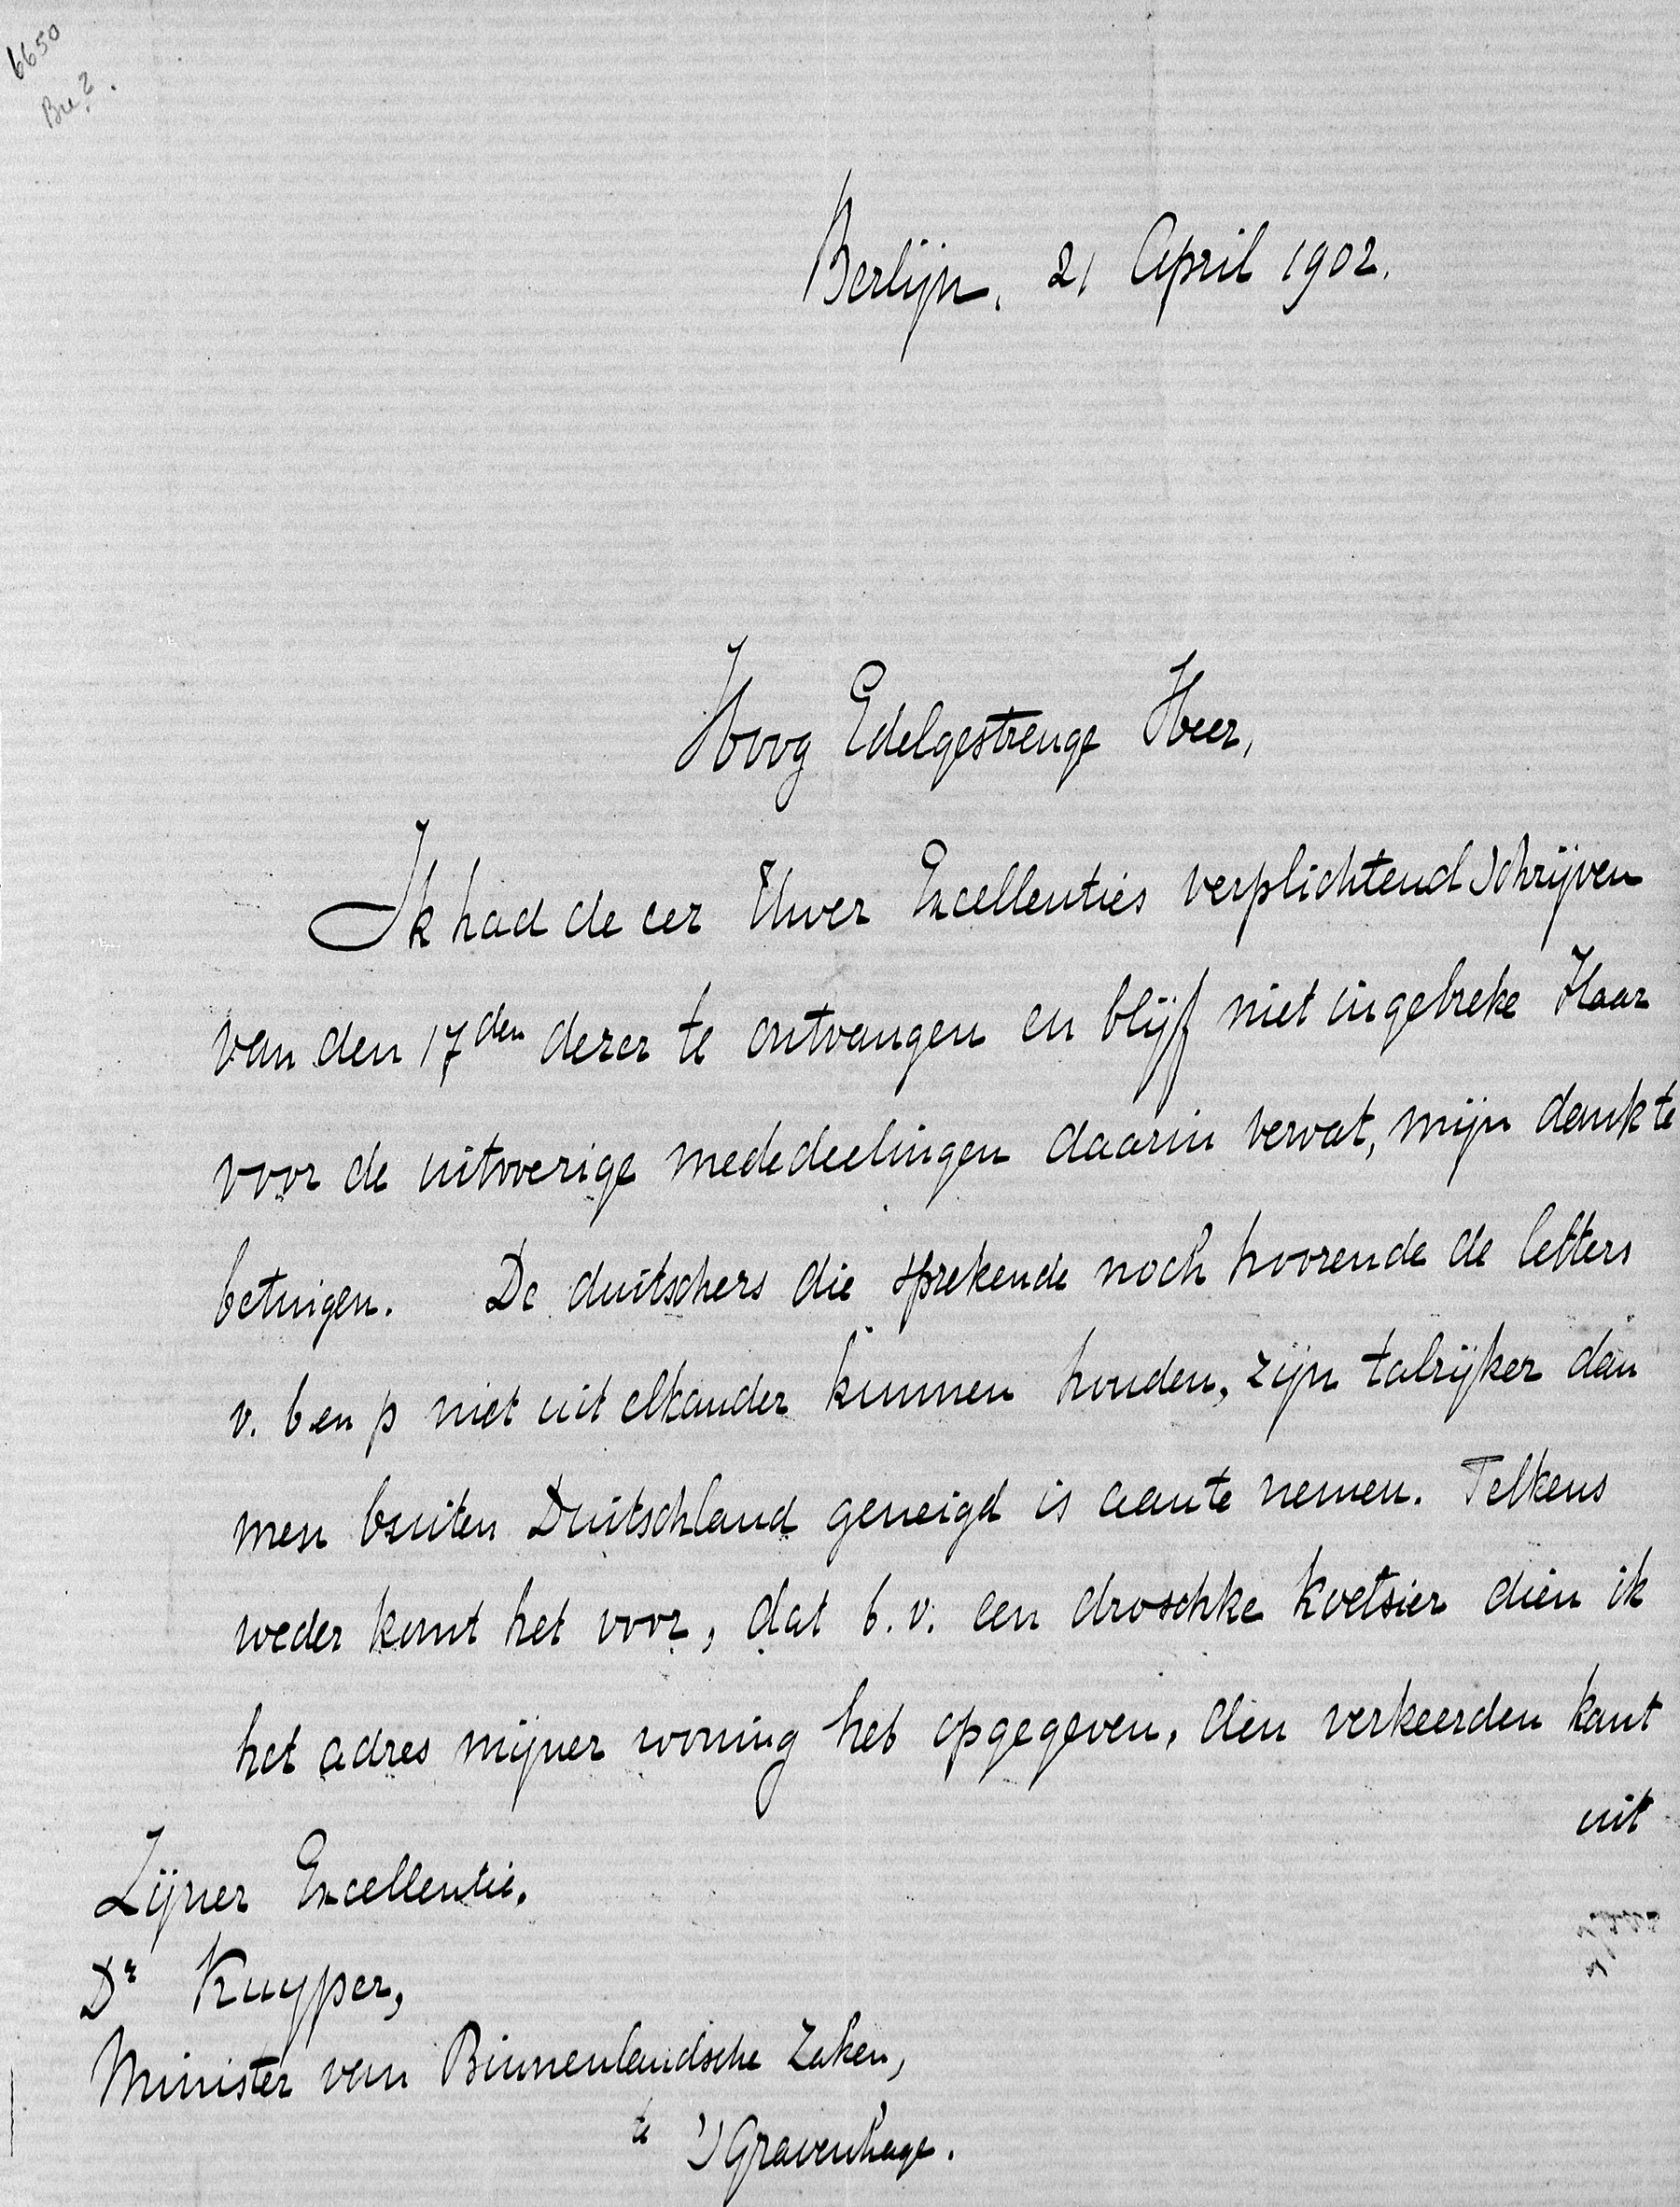 6650
Bu2.
Berlijn. 21 April 1902.
Hoog Edelgestrenge Heer,
Ik had de eer Uwer Excellenties verplichtend schrijven
van den 17den dezer te ontvangen en blijf niet ingebreke Haar
voor de uitvoerige mededeelingen daarin vervat, mijn dank te
betuigen. De duitschers die sprekende noch hoorende de letters
v. b en p niet uit elkander kunnen houden, zijn talrijker dan
men buiten Duitschland geneigd is aan te nemen. Telkens
weder komt het voor, dat b.v. een droschke koetsier dien ik
het adres mijner woning heb opgegeven, den verkeerden kant
uit
Zijner Excellentie.
Dr Kuyper,
Minister van Binnenlandsche Zaken,
te 's Gravenhage.